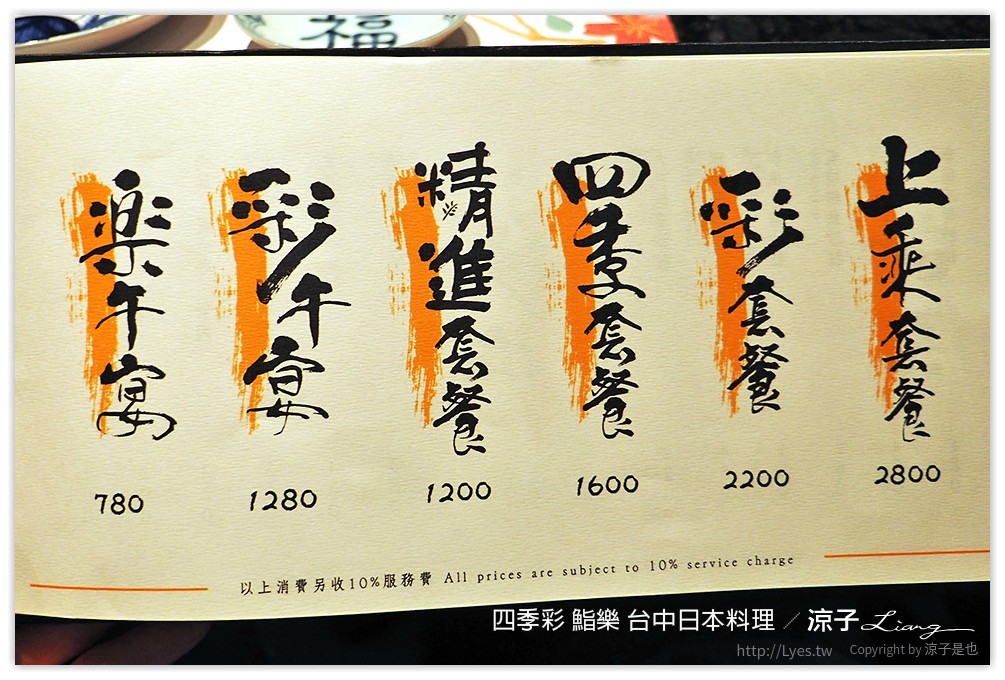 福
楽午宴
780
彩午宴
1280
精進套餐
1200
四季套餐
1600
彩套餐
2200
上乘套餐
2800
以上消費另收10%服務費 All prices are subject to 10% service charge
四季彩 鮨樂 台中日本料理 ／涼子 Liang
http://Lyes.tw Copyright by 涼子是也